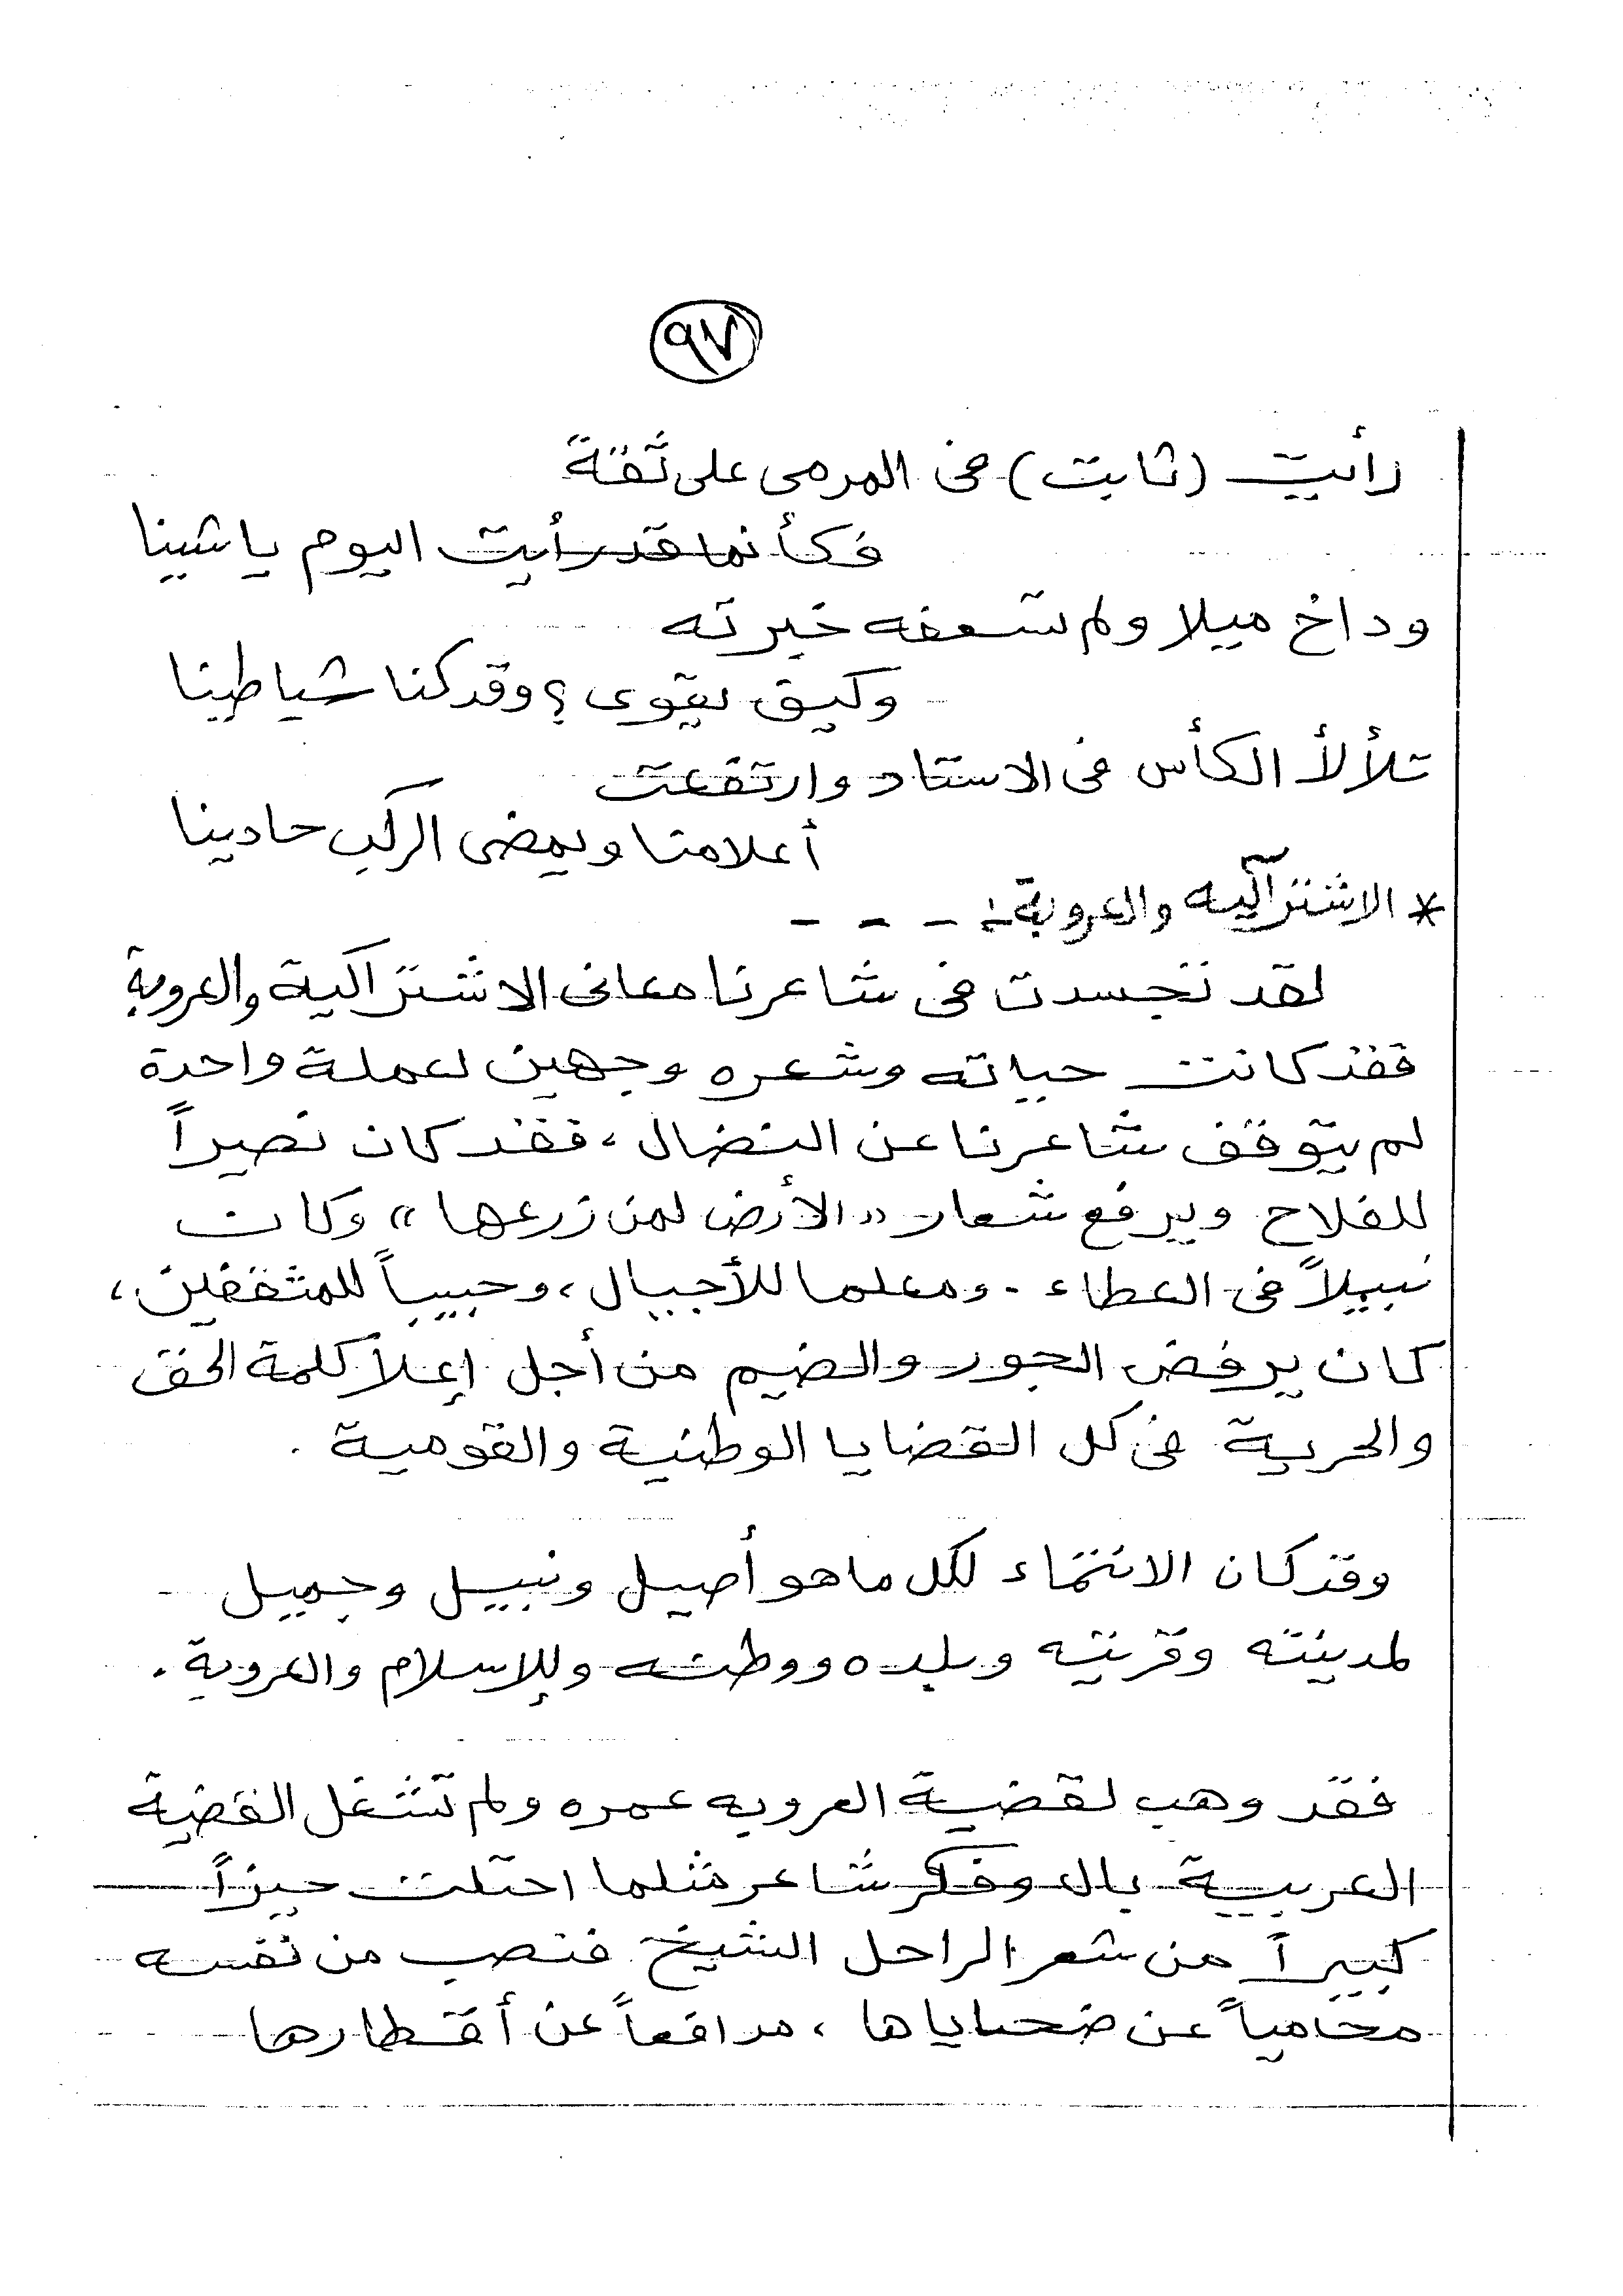 ٩٧
رأيت (ثابت) فى المرمى على ثقة
فكأنما قد رأيت اليوم ياشينا
وداخ ميلا ولم تسعفه خبرته
وكيف يقوى ؟ وقد كنا شياطينا
تلألأ الكأس فى الاستاد وارتفعت
أعلامنا ويمضى الركب حادينا
* الاشتراكيه والعروبة :- - - -
لقد تجسدت فى شاعرنا معانى الاشتراكية والعروبة
فقد كانت حياته وشعره وجهين لعملة واحدة
لم يتوقف شاعرنا عن النضال ، فقد كان نصيراً
للفلاح ويرفع شعار "الأرض لمن زرعها" وكان
نبيلاً فى العطاء . ومعلما للأجيال ، وحبيباً للمثقفين ،
كان يرفض الجور والضيم من أجل إعلاً كلمة الحق
والحرية فى كل القضايا الوطنية والقومية .
وقد كان الانتماء لكل ما هو أصيل ونبيل وجميل
لمدينته وقريته وبلده ووطنه وللإسلام والعروبة .
فقد وهب لقضية العروبه عمره ولم تشغل القضية
العربية بال وفكر شاعر مثلما احتلت حيزاً
كبيراً من شعر الراحل الشيخ فنصب من نفسه
محامياً عن ضحاياها ، مدافعاً عن أقطارها